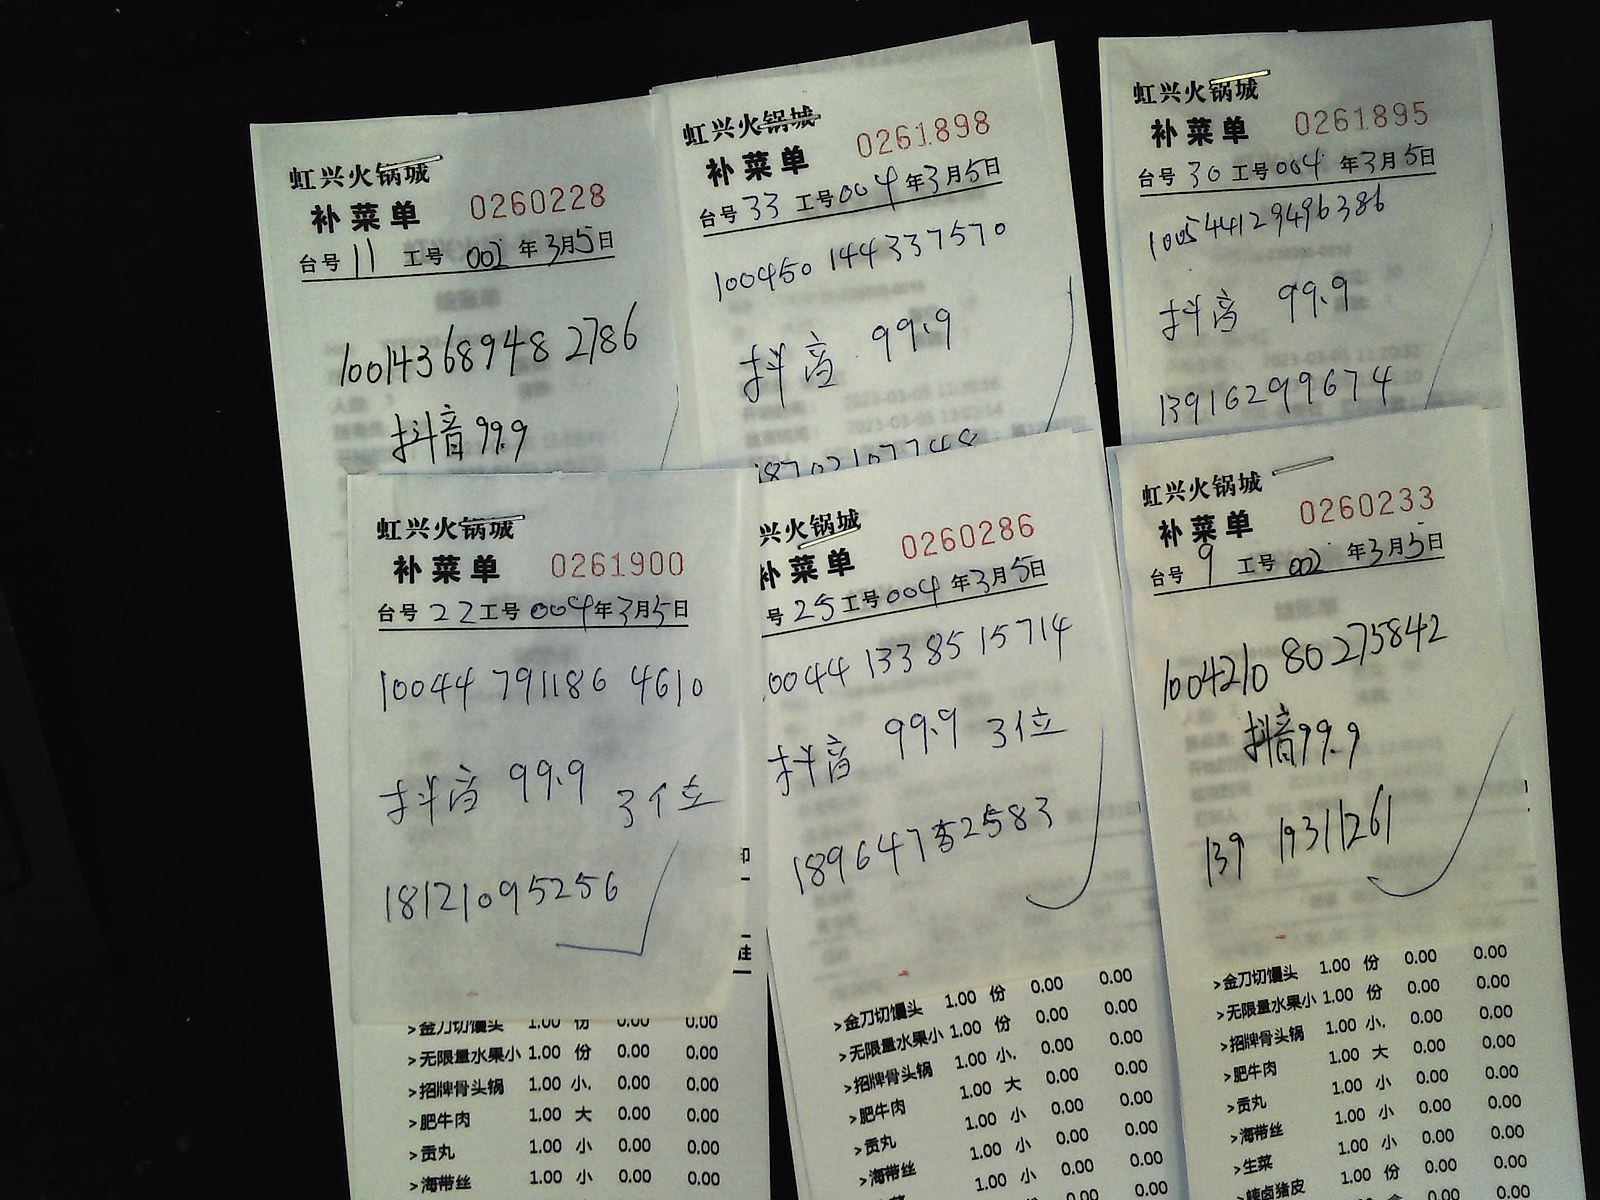 虹兴火锅城
补菜单 0260228
台号 11 工号 002 年3月5日
10014368948 2786
抖音99.9
虹兴火锅城
补菜单 0261898
台号 33 工号 004 年3月5日
100450 144337570
抖音 99.9
18702107748
虹兴火锅城
补菜单 0261895
台号 30 工号 004 年3月5日
100544129496386
抖音 99.9
13916299674
虹兴火锅城
补菜单 0261900
台号 22 工号 004 年3月5日
10044 791186 4610
抖音 99.9 3位
18121095256
>金刀切馒头 1.00 份 0.00 0.00
>无限量水果小 1.00 份 0.00 0.00
>招牌骨头锅 1.00 小. 0.00 0.00
>肥牛肉 1.00 大 0.00 0.00
>贡丸 1.00 小 0.00 0.00
>海带丝 1.00 小 0.00 0.00
兴火锅城
补菜单 0260286
号 25 工号 004 年3月5日
0044 133 85 15714
抖音 99.9 3位
>金刀切馒头 1.00 份 0.00 0.00
>无限量水果小 1.00 份 0.00 0.00
>招牌骨头锅 1.00 小. 0.00 0.00
>肥牛肉 1.00 大 0.00 0.00
>贡丸 1.00 小 0.00 0.00
>海带丝 1.00 小 0.00 0.00
虹兴火锅城
补菜单 0260233
台号 9 工号 002 年3月5日
1004210 80275842
抖音99.9
139 19311261
>金刀切馒头 1.00 份 0.00 0.00
>无限量水果小 1.00 份 0.00 0.00
>招牌骨头锅 1.00 小. 0.00 0.00
>肥牛肉 1.00 大 0.00 0.00
>贡丸 1.00 小 0.00 0.00
>海带丝 1.00 小 0.00 0.00
>生菜 1.00 小 0.00 0.00
>辣卤猪皮 1.00 份 0.00 0.00